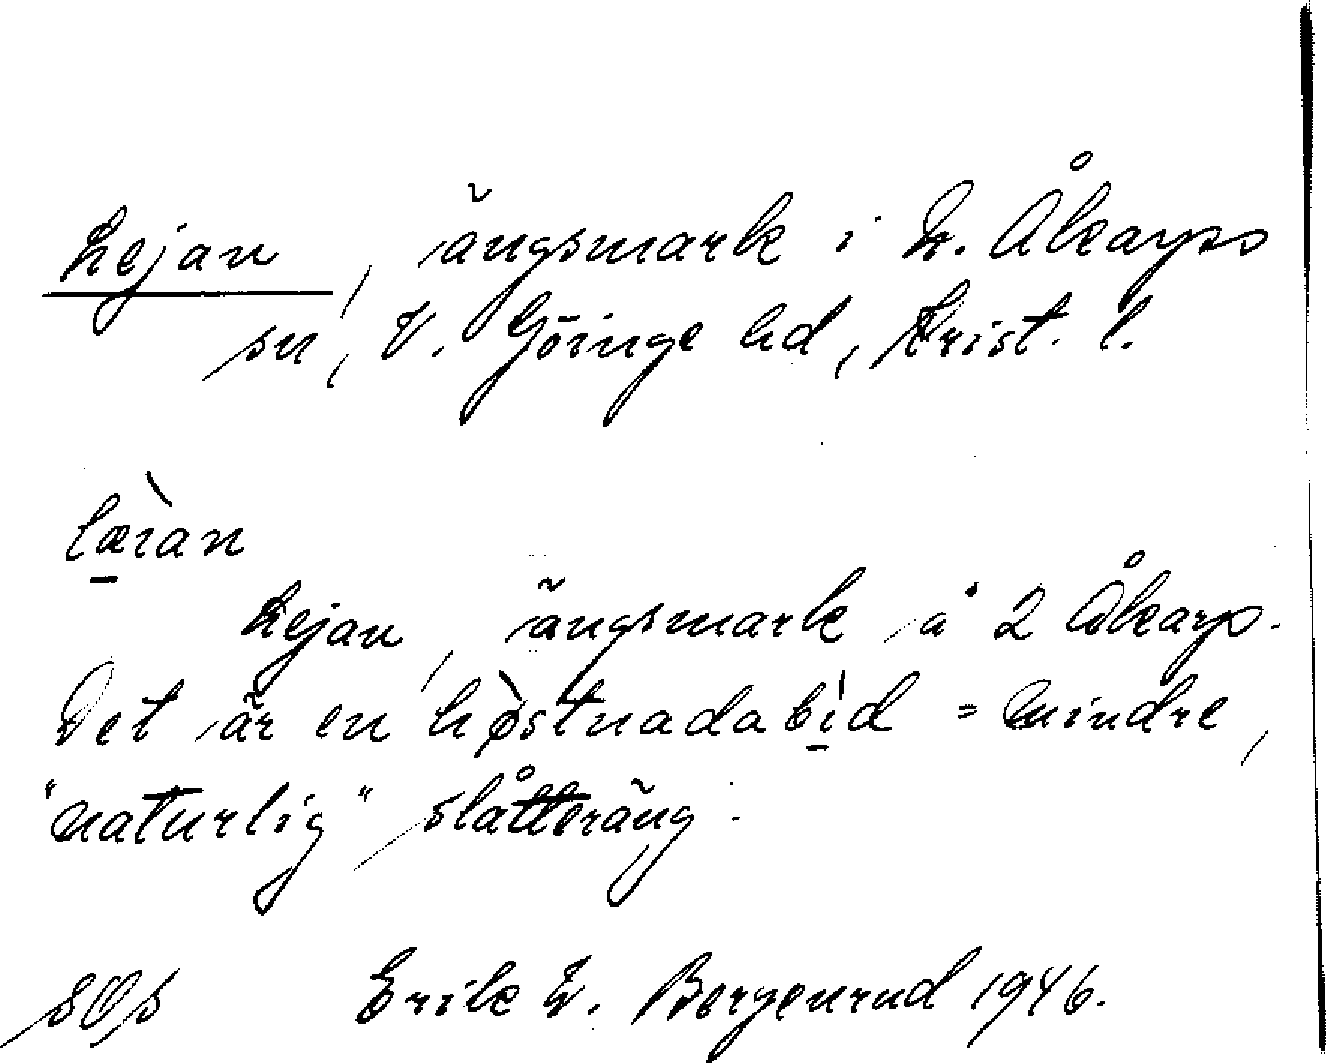 Lejan, ängsmark i V. Åkarps
sn, V. Göinge hd, Krist. l.
læ̱̀ıan
Lejan, ängsmark å 2 Åkarp.
Det är en hø̀stnadabi̱d = mindre,
"naturlig" slåtteräng.
Erik V. Borgenrud 1946.